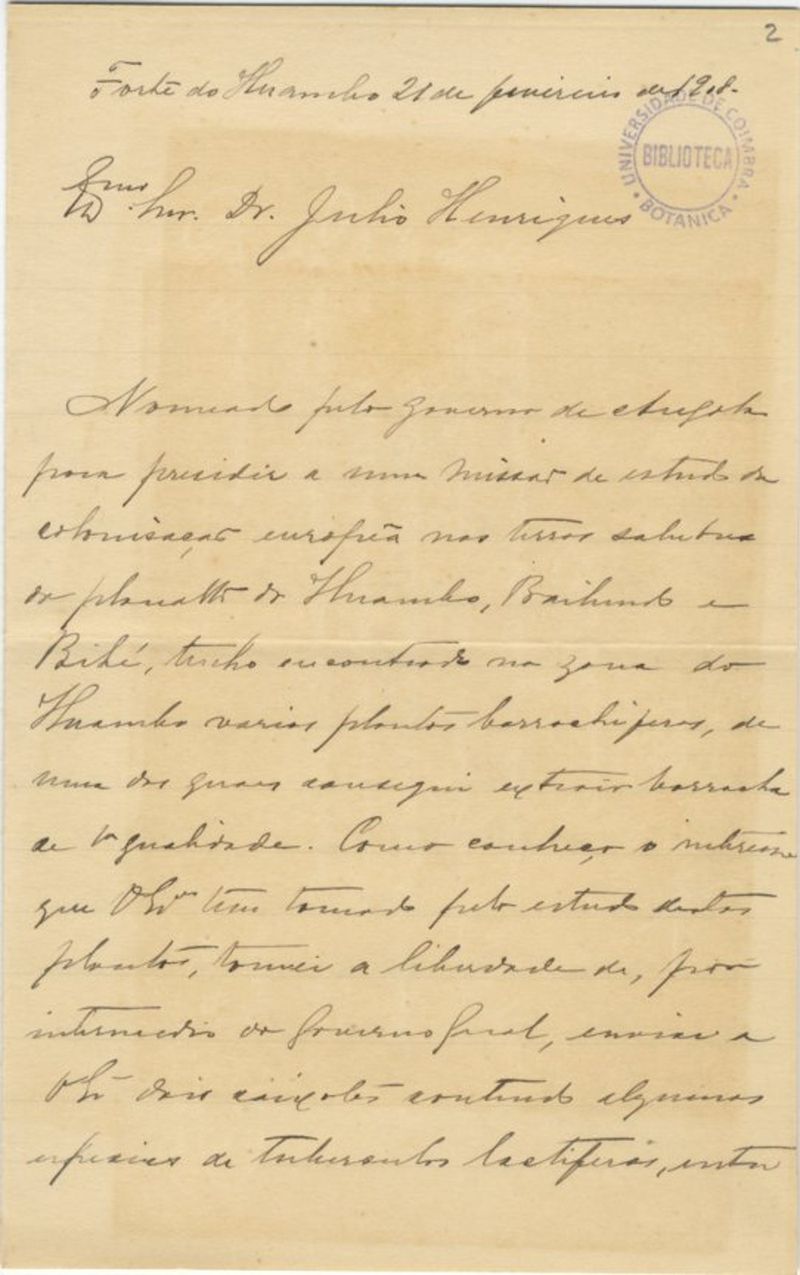 2
Forte do Huambo 21 de fevereiro de 1908.
UNIVERSIDADE DE COIMBRA
BIBLIOTECA
BOTANICA
Exmo Snr. Dr. Julio Henriques
Nomeado pelo governo de Angola
para presidir a uma missão de estudo da
colonisação europêa nas terras salubres
do planalto do Huambo, Bailundo e
Bihé, tenho encontrado na zona do
Huambo varias plantas borrachiferas, de
uma das quaes consegui extrair borracha
de 1a qualidade. Como conheço o interesse
que VExa tem tomado pelo estudo destas
plantas, tomei a liberdade de, por
intermedio do Governo Geral, enviar a
VExa dois caixotes contendo algumas
especies de tuberculos lactiferos, entre